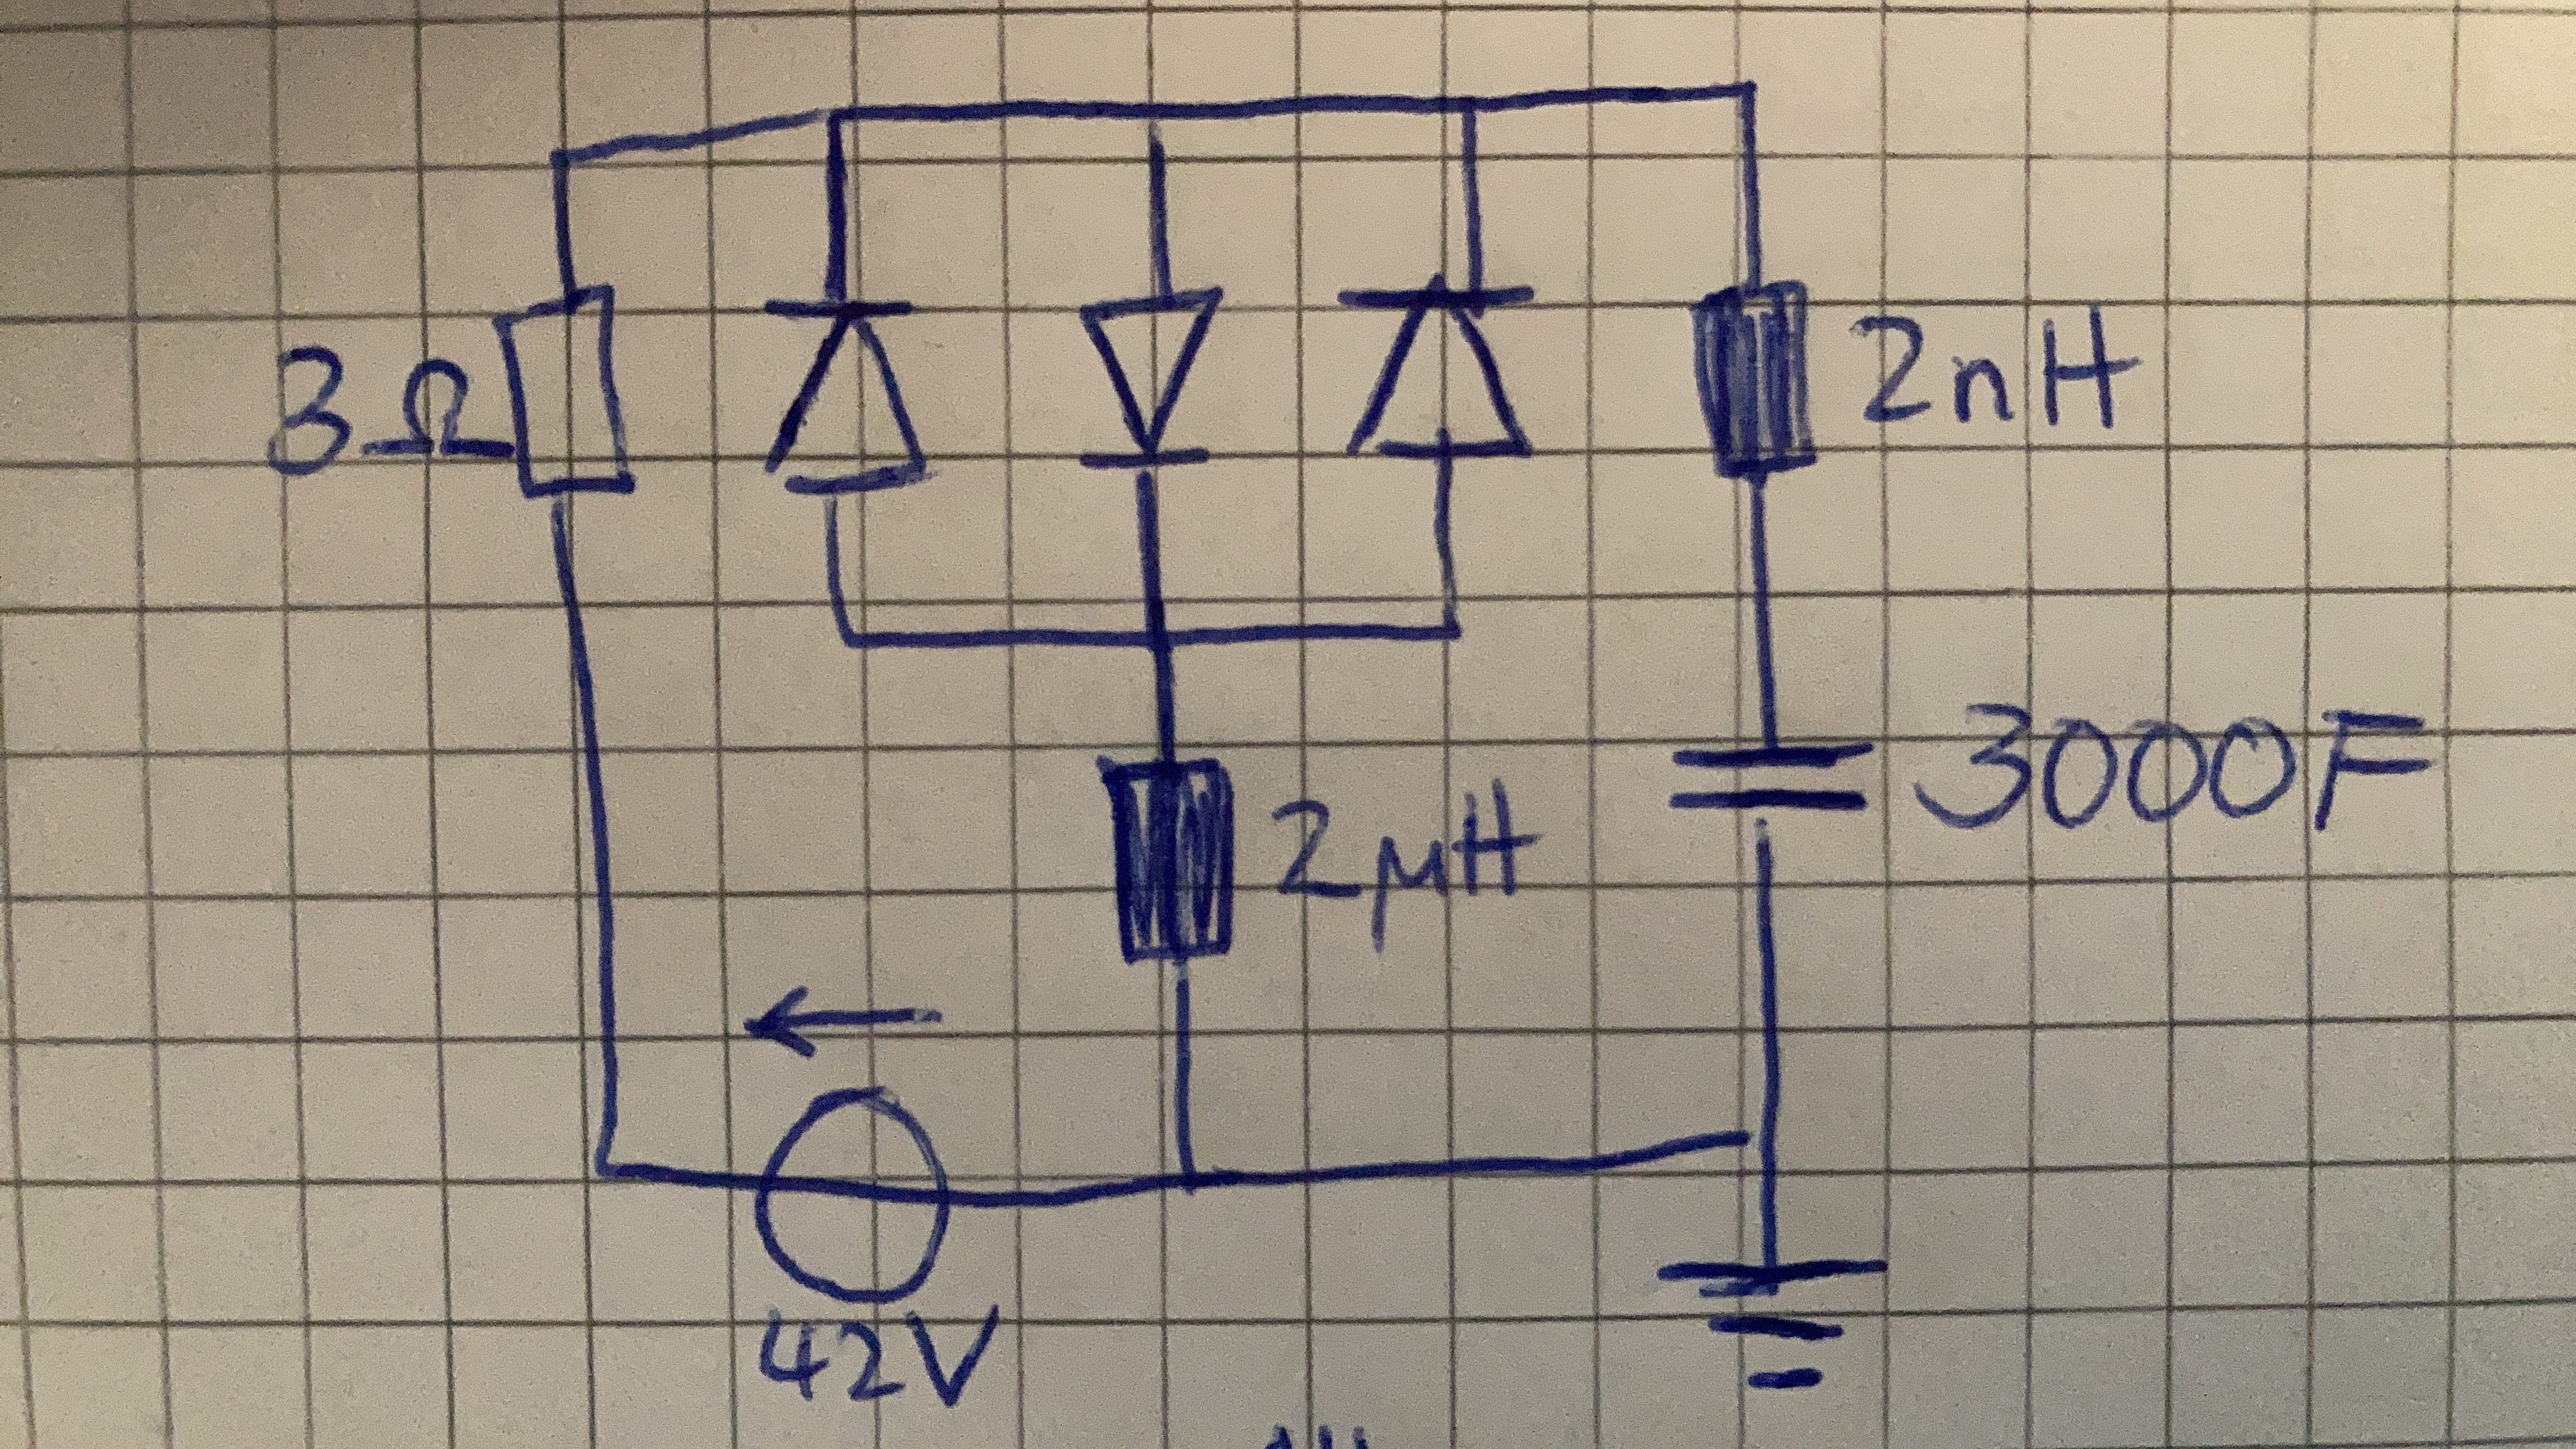 3Ω
2nH
3000F
2µH
42V